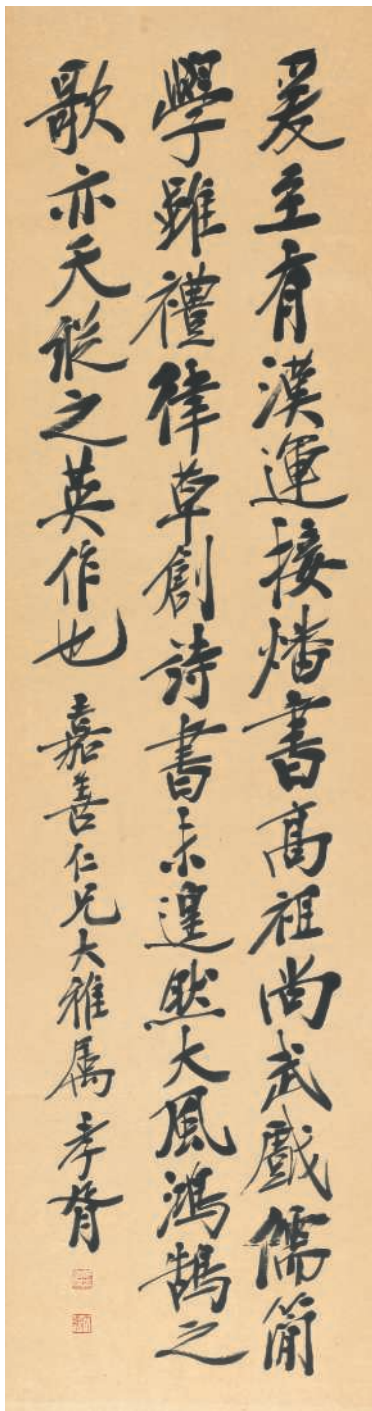 爰至有漢運接燔書高祖尚武戲儒簡
學雖禮律草創詩書未遑然大風鴻鵠之
歌亦天縱之英作也 嘉善仁兄大雅屬 孝胥